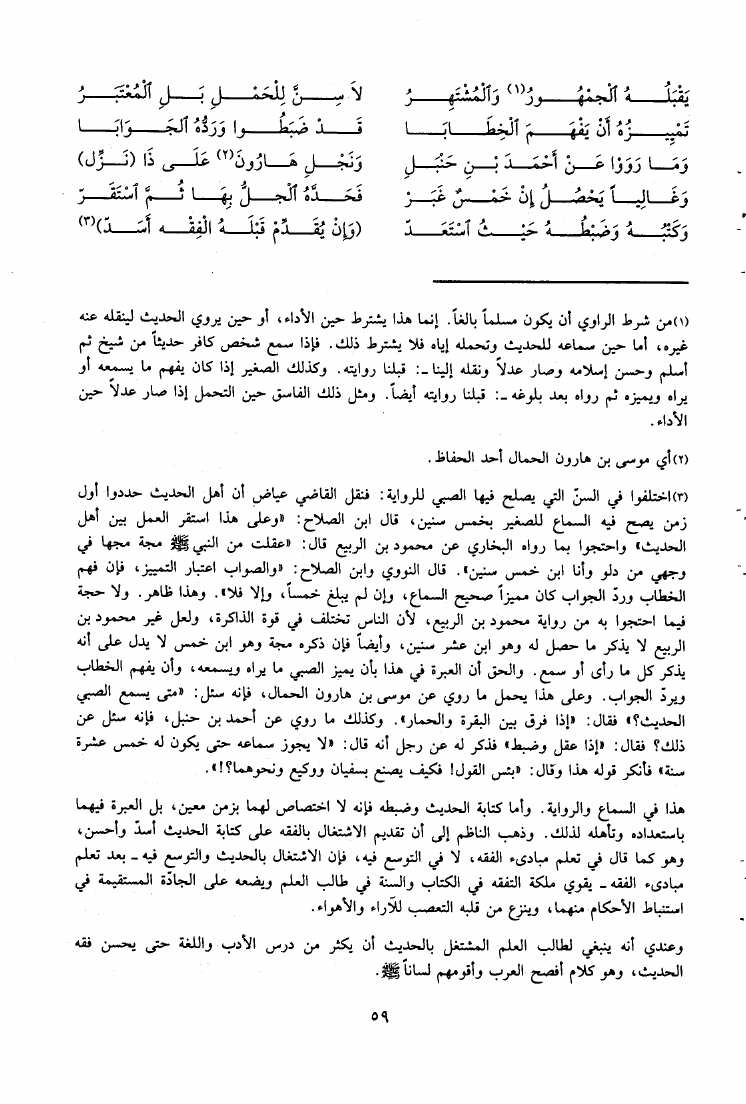 يَقْبَلُهُ ٱلْجمْهُورُ(١) وَٱلْمُشْتَهِرُ لاَ سِنَّ لِلْحَمْلِ بَلِ ٱلْمُعْتَبَرُ
تَمْيِيزُهُ أَنْ يَفْهَمَ ٱلْخِطَابَا قَدْ ضَبَطُوا وَرَدُّهُ ٱلجَوَابَا
وَمَا رَوَوْا عَنْ أَحْمَدَ بْنِ حَنْبَلِ وَنَجْلِ هَارُونَ(٢) عَلَى ذَا (نَزِّلِ)
وَغَالِباً يَحْصُلُ إِنْ خَمْسٌ غَبَرْ فَحَدَّهُ ٱلْجلُّ بِهَا ثُمَّ ٱسْتَقَرّ
وَكَتْبُهُ وَضَبْطُهُ حَيْثُ ٱسْتَعَدّ (وَإِنْ يُقَدِّمْ قَبْلَهُ الْفِقْهَ أَسَدّ)(٣)
(١)من شرط الراوي أن يكون مسلماً بالغاً. إنما هذا يشترط حين الأداء، أو حين يروي الحديث لينقله عنه
غيره، أما حين سماعه للحديث وتحمله إياه فلا يشترط ذلك. فإذا سمع شخص كافر حديثاً من شيخ ثم
أسلم وحسن إسلامه وصار عدلاً ونقله إلينا ـ: قبلنا روايته. وكذلك الصغير إذا كان يفهم ما يسمعه أو
يراه ويميزه ثم رواه بعد بلوغه ـ: قبلنا روايته أيضاً. ومثل ذلك الفاسق حين التحمل إذا صار عدلاً حين
الأداء.
(٢)أي موسى بن هارون الحمال أحد الحفاظ.
(٣)اختلفوا في السنّ التي يصلح فيها الصبي للرواية: فنقل القاضي عياض أن أهل الحديث حددوا أول
زمن يصح فيه السماع للصغير بخمس سنين، قال ابن الصلاح: «وعلى هذا استقر العمل بين أهل
الحديث» واحتجوا بما رواه البخاري عن محمود بن الربيع قال: «عقلت من النبي ﷺ مجة مجها في
وجهي من دلو وأنا ابن خمس سنين». قال النووي وابن الصلاح: «والصواب اعتبار التمييز، فإن فهم
الخطاب وردّ الجواب كان مميزاً صحيح السماع، وإن لم يبلغ خمساً، وإلا فلا». وهذا ظاهر. ولا حجة
فيما احتجوا به من رواية محمود بن الربيع، لأن الناس تختلف في قوة الذاكرة، ولعل غير محمود بن
الربيع لا يذكر ما حصل له وهو ابن عشر سنين، وأيضاً فإن ذكره مجة وهو ابن خمس لا يدل على أنه
يذكر كل ما رأى أو سمع. والحق أن العبرة في هذا بأن يميز الصبي ما يراه ويسمعه، وأن يفهم الخطاب
ويردّ الجواب. وعلى هذا يحمل ما روي عن موسى بن هارون الحمال، فإنه سئل: «متى يسمع الصبي
الحديث؟» فقال: «إذا فرق بين البقرة والحمار». وكذلك ما روي عن أحمد بن حنبل، فإنه سئل عن
ذلك؟ فقال: «إذا عقل وضبط» فذكر له عن رجل أنه قال: «لا يجوز سماعه حتى يكون له خمس عشرة
سنة» فأنكر قوله هذا وقال: «بئس القول! فكيف يصنع بسفيان ووكيع ونحوهما؟!».
هذا في السماع والرواية. وأما كتابة الحديث وضبطه فإنه لا اختصاص لهما بزمن معين، بل العبرة فيهما
باستعداده وتأهله لذلك. وذهب الناظم إلى أن تقديم الاشتغال بالفقه على كتابة الحديث أسدّ وأحسن،
وهو كما قال في تعلم مبادىء الفقه، لا في التوسع فيه، فإن الاشتغال بالحديث والتوسع فيه ـ بعد تعلم
مبادىء الفقه ـ يقوي ملكة التفقه في الكتاب والسنة في طالب العلم ويضعه على الجادّة المستقيمة في
استنباط الأحكام منهما، وينزع من قلبه التعصب للآراء والأهواء.
وعندي أنه ينبغي لطالب العلم المشتغل بالحديث أن يكثر من درس الأدب واللغة حتى يحسن فقه
الحديث، وهو كلام أفصح العرب وأقومهم لساناً ﷺ.
٥٩